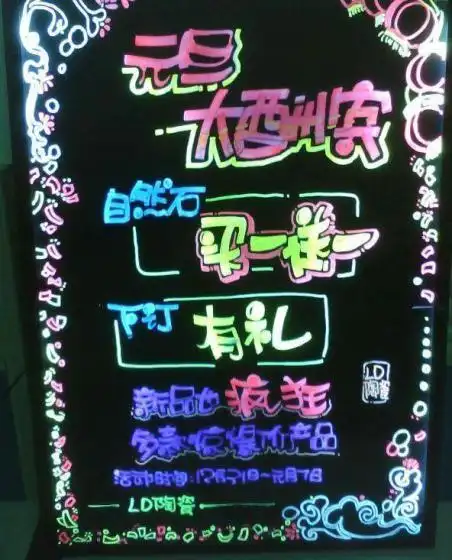 元旦
大酬宾
自然石
买一送一
下订
有礼
LD
陶瓷
新品也疯狂
多款惊爆价产品
活动时间:12月21日~元月7日
LD陶瓷